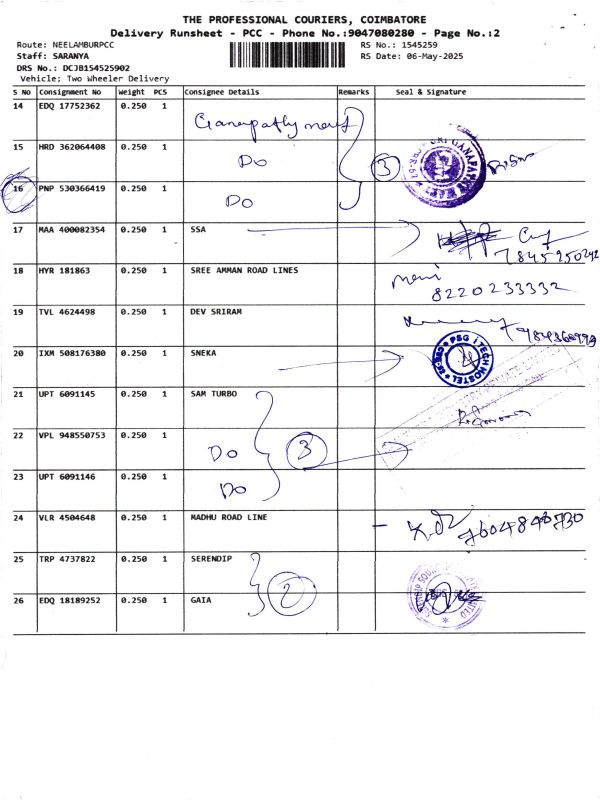 THE PROFESSIONAL COURIERS, COIMBATORE
Delivery Runsheet - PCC - Phone No.:9047080280 - Page No.:2
Route: NEELAMBURPCC
RS No.: 1545259
Staff: SARANYA
RS Date: 06-May-2025
DRS No.: DCJB154525902
Vehicle; Two Wheeler Delivery
S No Consignment No Weight PCS Consignee Details Remarks Seal & Signature
14 EDQ 17752362 0.250 1 Ganapathy
15 HRD 362064408 0.250 1 Do 3
16 PNP 530366419 0.250 1 Do
17 MAA 400082354 0.250 1 SSA
7845950242
18 HYR 181863 0.250 1 SREE AMMAN ROAD LINES
Mani
8220233332
19 TVL 4624498 0.250 1 DEV SRIRAM
20 IXM 508176380 0.250 1 SNEKA PSG iTECH HOSTEL
21 UPT 6091145 0.250 1 SAM TURBO
22 VPL 948550753 0.250 1 Do 3
23 UPT 6091146 0.250 1 Do
24 VLR 4504648 0.250 1 MADHU ROAD LINE
7604848730
25 TRP 4737822 0.250 1 SERENDIP
26 EDQ 18189252 0.250 1 GAIA 2